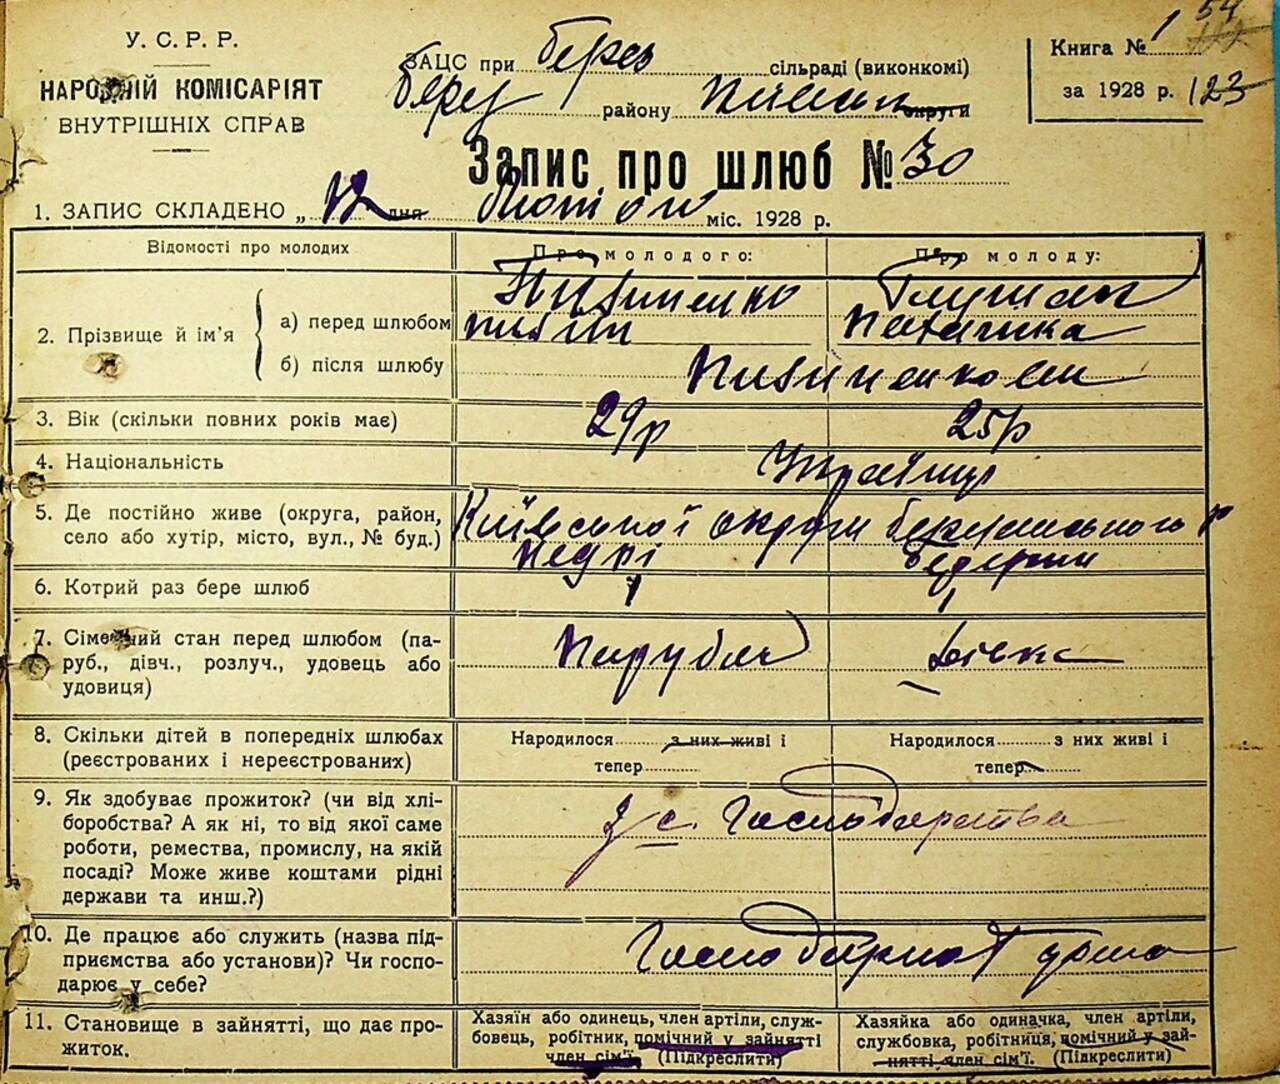 У. С. Р. Р.
НАРОДНІЙ КОМІСАРІЯТ
ВНУТРІШНІХ СПРАВ
ЗАЦС при Берез сільраді (виконкомі)
Берез району округи
Книга № 1 54
за 1928 р. 123
Запис про шлюб № 30
1. ЗАПИС СКЛАДЕНО „ 12 дня Лютого міс. 1928 р.
Відомості про молодих
Про молодого:
Про молоду:
2. Прізвище й ім'я
а) перед шлюбом
б) після шлюбу
Пивиненко
3. Вік (скільки повних років має)
29р
25р
4. Національність
Українці
5. Де постійно живе (округа, район,
село або хутір, місто, вул., № буд.)
Київської округи р
Недрі
6. Котрий раз бере шлюб
1
1
7. Сімейний стан перед шлюбом (па-
руб., дівч., розлуч., удовець або
удовиця)
Парубок
Дівка
8. Скільки дітей в попередніх шлюбах
(реєстрованих і нереєстрованих)
Народилося з них живі і
тепер
Народилося з них живі і
тепер
9. Як здобуває прожиток? (чи від хлі-
боробства? А як ні, то від якої саме
роботи, ремества, промислу, на якій
посаді? Може живе коштами рідні
держави та инш.?)
з/с. Господарства
10. Де працює або служить (назва під-
приємства або установи)? Чи госпо-
дарює у себе?
11. Становище в зайнятті, що дає про-
житок.
Хазяїн або одинець, член артіли, служ-
бовець, робітник, помічний у зайнятті
член сім'ї. (Підкреслити)
Хазяйка або одиначка, член артіли,
службовка, робітниця, помічний у зай-
нятті член сім'ї. (Підкреслити)